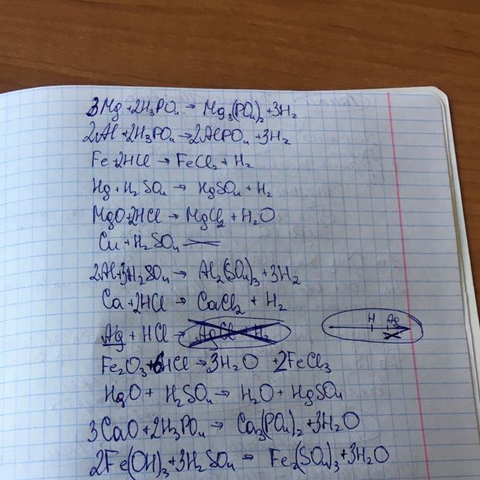 3Mg+2H₃PO₄→Mg₃(PO₄)₂+3H₂
2Al+2H₃PO₄→2AlPO₄+3H₂
Fe+2HCl→FeCl₂+H₂
Hg+H₂SO₄→HgSO₄+H₂
MgO+2HCl→MgCl₂+H₂O
Cu+H₂SO₄
2Al+3H₂SO₄→Al₂(SO₄)₃+3H₂
Ca+2HCl→CaCl₂+H₂
Ag+HCl→AgCl H₂ H Ag
Fe₂O₃+6HCl→3H₂O 2FeCl₃
HgO+H₂SO₄→H₂O+HgSO₄
3CaO+2H₃PO₄→Ca₃(PO₄)₂+3H₂O
2Fe(OH)₃+3H₂SO₄=Fe₂(SO₄)₃+3H₂O